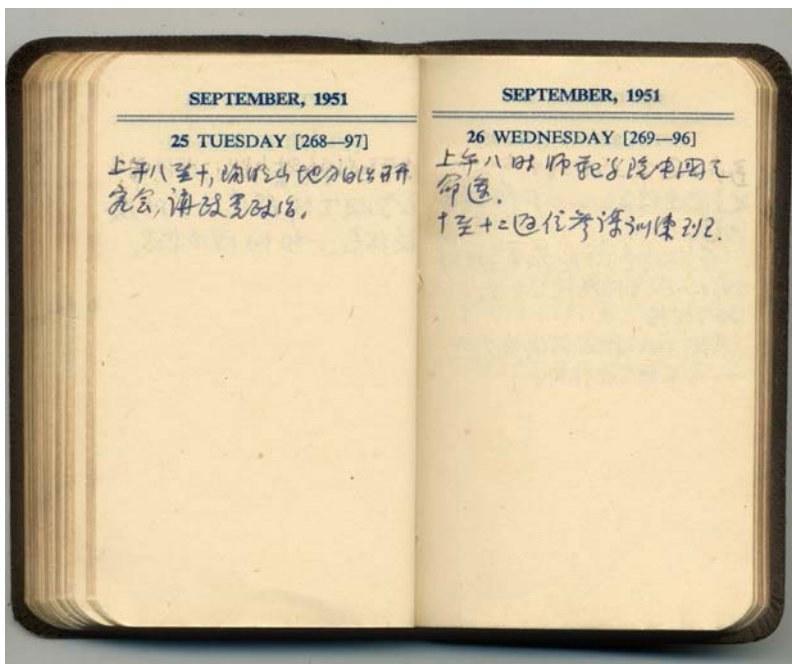 SEPTEMBER, 1951
25 TUESDAY [268—97]
上午八至十,陽明山地方自治研
究会,講政党政治。
SEPTEMBER, 1951
26 WEDNESDAY [269—96]
上午八时师范学院中国之
命运.
十至十二通信参谋训练班.